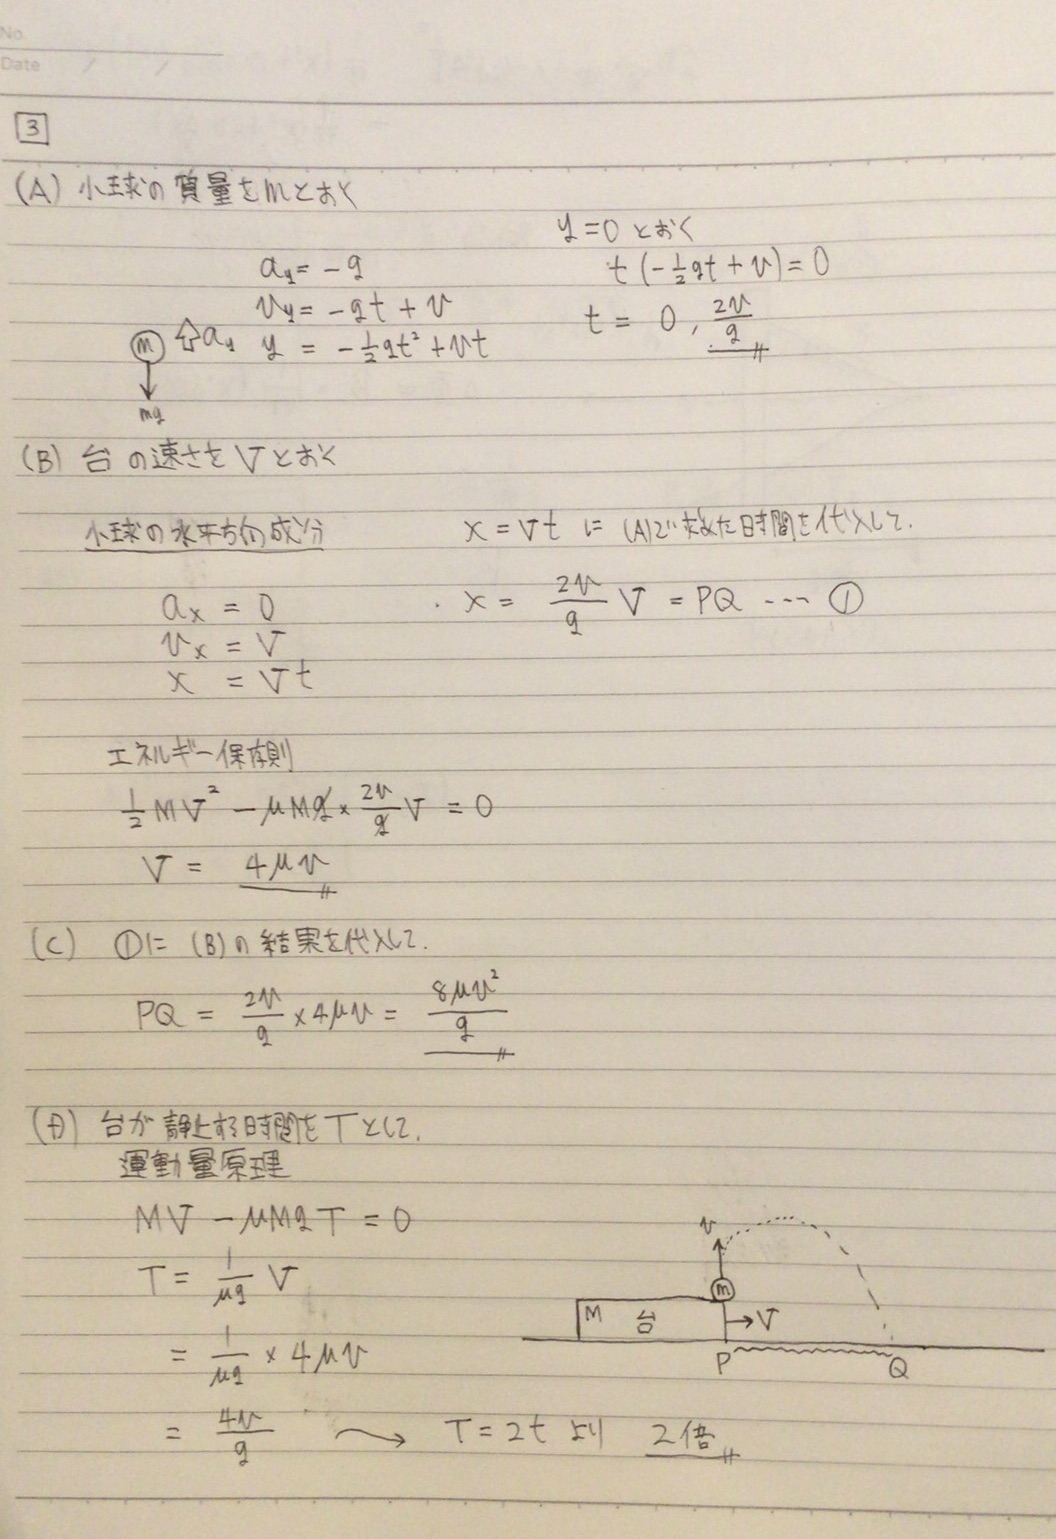 No.
Date
3
(A) 小球の質量をmとおく
a_y = -g
v_y = -gt + v
y = -\frac{1}{2}gt² + vt
m a_y
mg
y=0 とおく
t(-\frac{1}{2}gt + v) = 0
t = 0, \frac{2v}{g}
(B) 台の速さをVとおく
小球の水平方向成分
a_x = 0
v_x = V
x = Vt
x = Vt に (A)で求めた時間を代入して.
x = \frac{2v}{g} V = PQ --- ①
エネルギー保存則
\frac{1}{2}MV² - μMg × \frac{2v}{g}V = 0
V = 4μv
(C) ①に (B)の結果を代入して.
PQ = \frac{2v}{g} × 4μv = \frac{8μv²}{g}
(D) 台が静止する時間をTとして.
運動量原理
MV - μMgT = 0
T = \frac{1}{μg} V
= \frac{1}{μg} × 4μv
= \frac{4v}{g}
T = 2t より 2倍
v
m
M 台 V
P Q